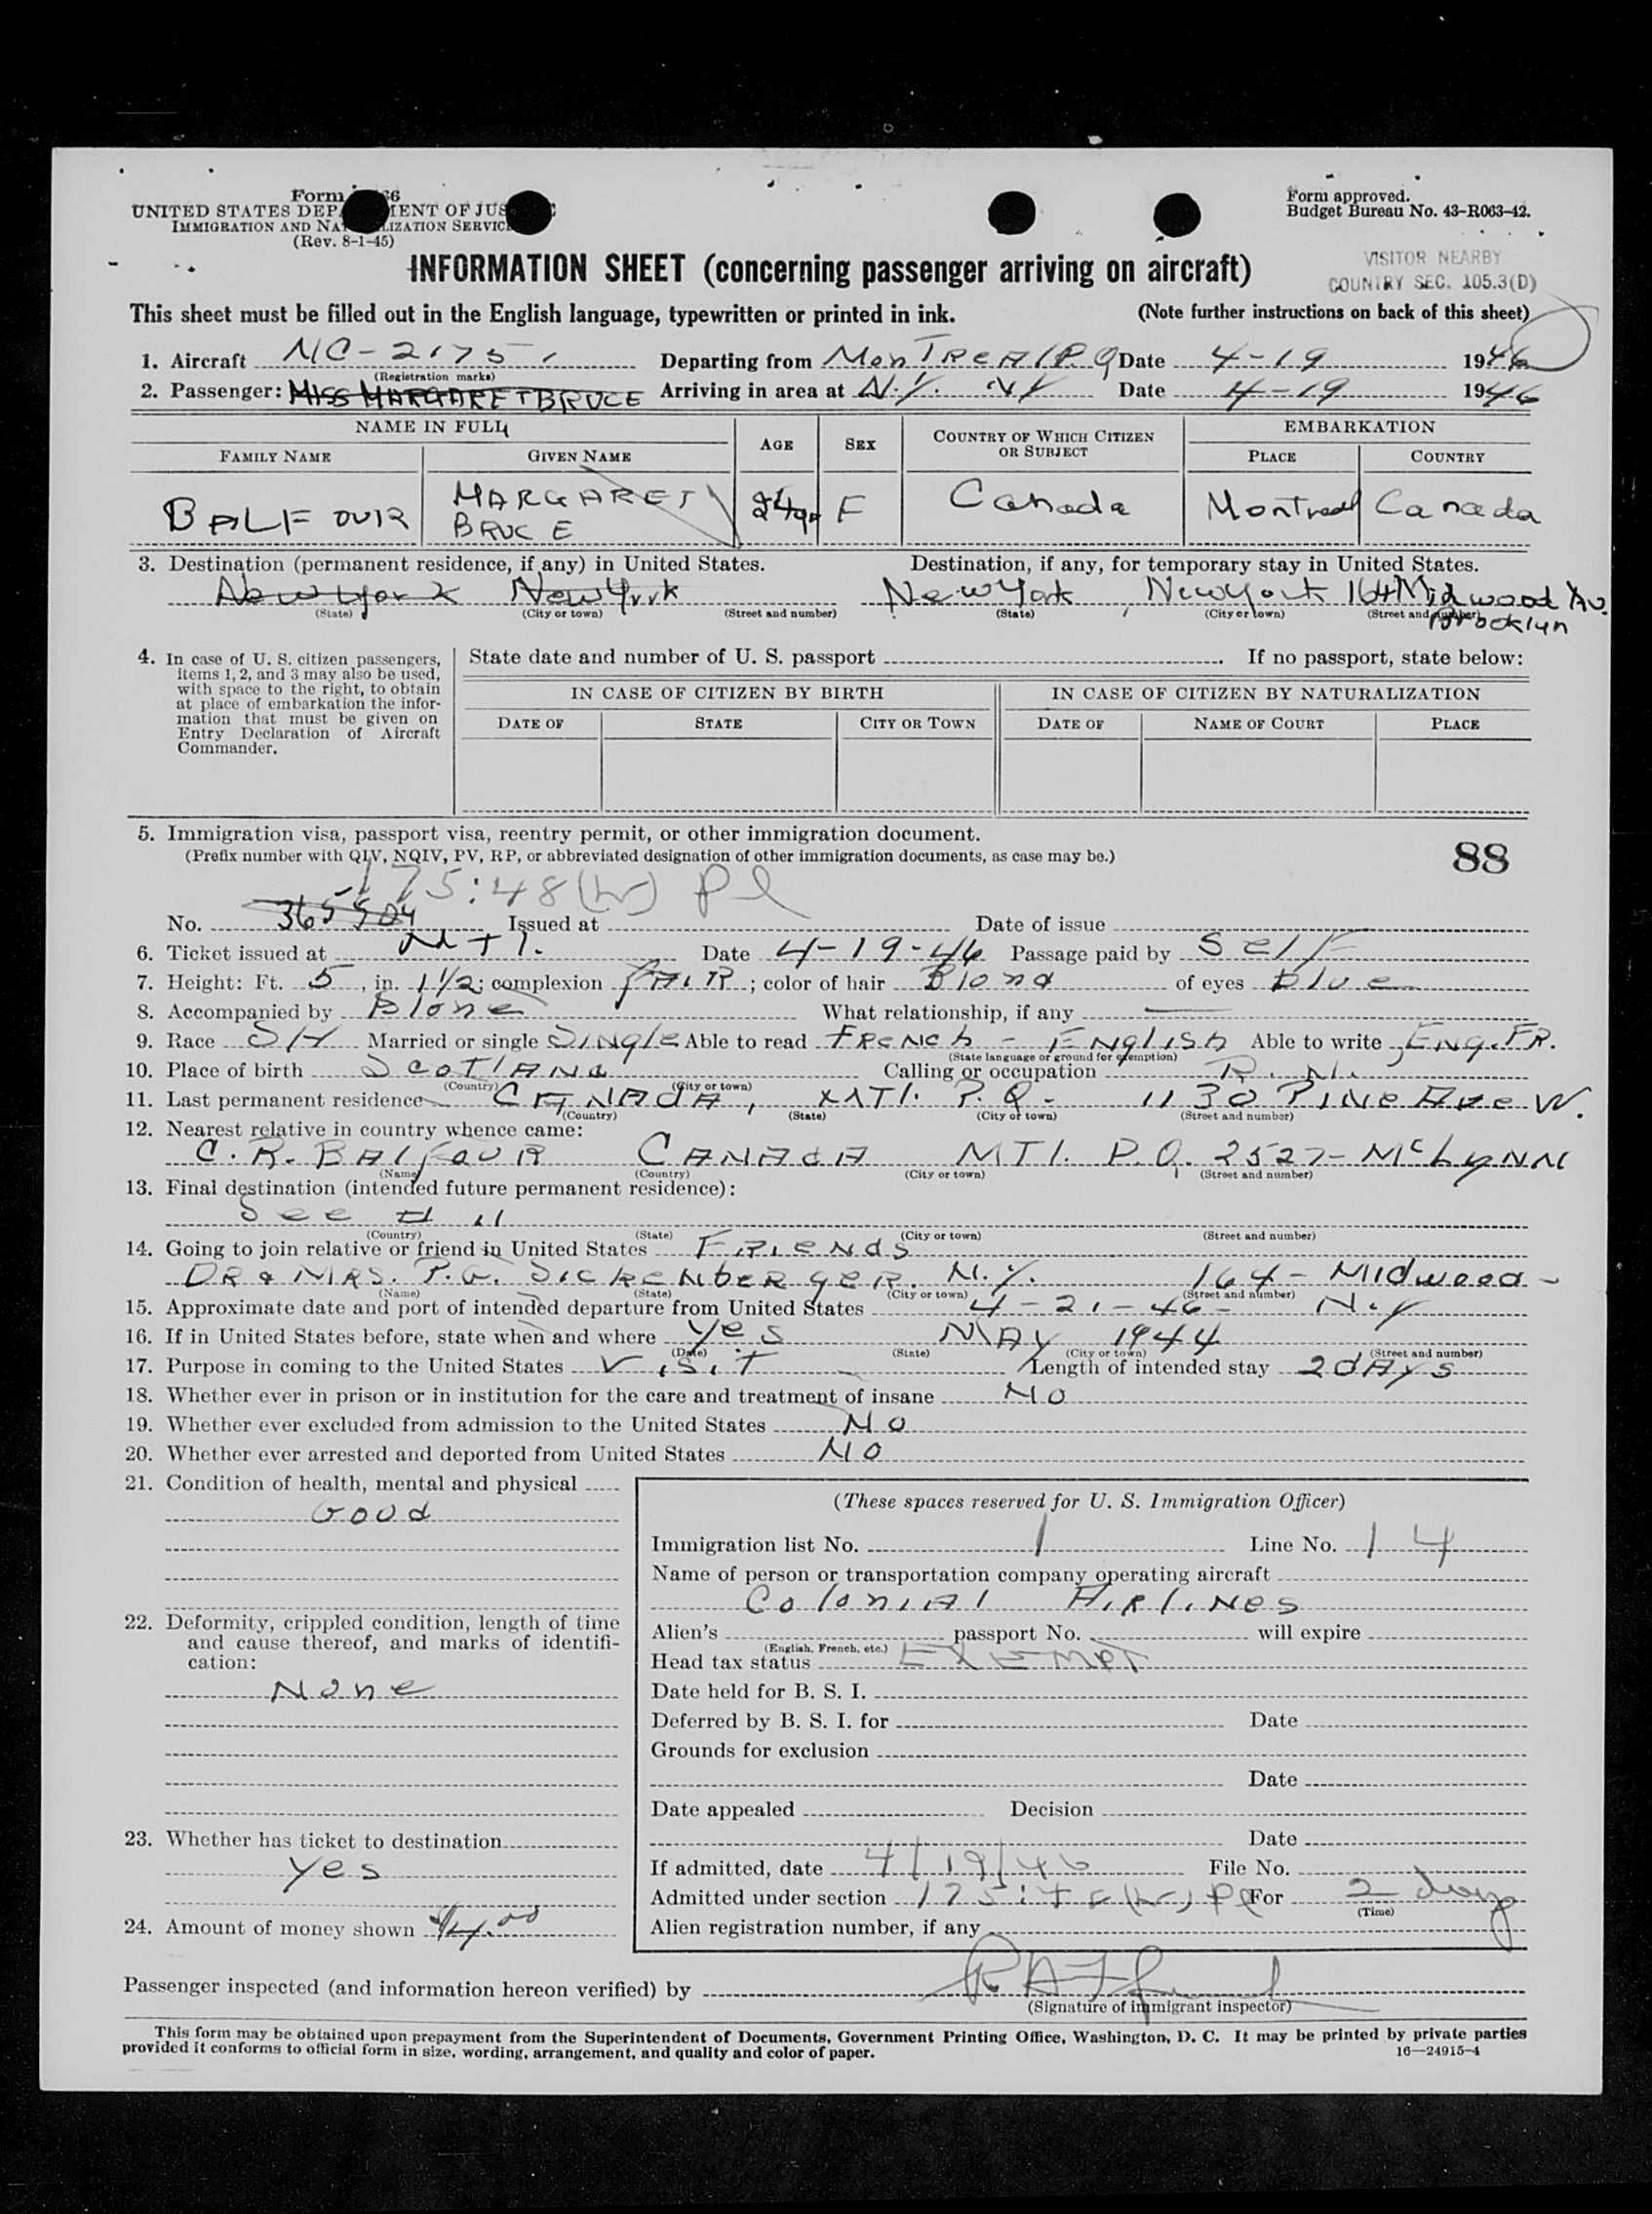 Form 66
UNITED STATES DEPARTMENT OF JUSTICE
IMMIGRATION AND NATURALIZATION SERVICE
(Rev. 8-1-45)
Form approved.
Budget Bureau No. 43-R063-42.
INFORMATION SHEET (concerning passenger arriving on aircraft)
VISITOR NEARBY
COUNTRY SEC. 105.3(D)
This sheet must be filled out in the English language, typewritten or printed in ink. (Note further instructions on back of this sheet)
1. Aircraft NC-21751 Departing from MonTReAl P.Q Date 4-19 1946
(Registration marks)
2. Passenger: MISS MARGARET BRUCE Arriving in area at N.Y. NY Date 4-19 1946
NAME IN FULL AGE SEX COUNTRY OF WHICH CITIZEN OR SUBJECT EMBARKATION
FAMILY NAME GIVEN NAME PLACE COUNTRY
BALFOUR MARGARET BRUCE 24 F Canada Montreal Canada
3. Destination (permanent residence, if any) in United States. Destination, if any, for temporary stay in United States.
New York New York New York New York 164 Midwood Av. Brooklyn
(State) (City or town) (Street and number) (State) (City or town) (Street and number)
4. In case of U. S. citizen passengers, items 1, 2, and 3 may also be used, with space to the right, to obtain at place of embarkation the information that must be given on Entry Declaration of Aircraft Commander.
State date and number of U. S. passport . If no passport, state below:
IN CASE OF CITIZEN BY BIRTH IN CASE OF CITIZEN BY NATURALIZATION
DATE OF STATE CITY OR TOWN DATE OF NAME OF COURT PLACE
5. Immigration visa, passport visa, reentry permit, or other immigration document.
(Prefix number with QIV, NQIV, PV, RP, or abbreviated designation of other immigration documents, as case may be.)
88
175:48(w) Pl
No. 365504 Issued at Date of issue
6. Ticket issued at MTl. Date 4-19-46 Passage paid by Self
7. Height: Ft. 5, in. 1 1/2; complexion fAIR; color of hair Blond of eyes Blue
8. Accompanied by Alone What relationship, if any —
9. Race Married or single Single Able to read FRench - English Able to write Eng. FR.
(State language or ground for exemption)
10. Place of birth ScotlANd Calling or occupation R.N.
(Country) (City or town)
11. Last permanent residence CANAdA, MTl. P.Q. 1130 PINe Ave W.
(Country) (State) (City or town) (Street and number)
12. Nearest relative in country whence came:
C.R. BAlfouR CANAdA MTl. P.Q. 2527- McLyNN
(Name) (Country) (City or town) (Street and number)
13. Final destination (intended future permanent residence):
See # 11
(Country) (State) (City or town) (Street and number)
14. Going to join relative or friend in United States FRIeNdS
DR & MRS. P.G. SickeNbeRgeR. N.Y. 164- Midwood-
(Name) (State) (City or town) (Street and number)
15. Approximate date and port of intended departure from United States 4-21-46- N.Y
16. If in United States before, state when and where yes MAy 1944
(Date) (State) (City or town) (Street and number)
17. Purpose in coming to the United States VisiT Length of intended stay 2 dAys
18. Whether ever in prison or in institution for the care and treatment of insane No
19. Whether ever excluded from admission to the United States No
20. Whether ever arrested and deported from United States No
21. Condition of health, mental and physical
Good
22. Deformity, crippled condition, length of time and cause thereof, and marks of identification:
None
23. Whether has ticket to destination
yes
24. Amount of money shown
(These spaces reserved for U. S. Immigration Officer)
Immigration list No. 1 Line No. 14
Name of person or transportation company operating aircraft
ColoniAl AiRliNes
Alien's passport No. will expire
(English, French, etc.)
Head tax status EXEMPT
Date held for B. S. I.
Deferred by B. S. I. for Date
Grounds for exclusion
Date
Date appealed Decision
Date
If admitted, date 4/19/46 File No.
Admitted under section 175:48(w) Pl For 2 days
(Time)
Alien registration number, if any
Passenger inspected (and information hereon verified) by
(Signature of immigrant inspector)
This form may be obtained upon prepayment from the Superintendent of Documents, Government Printing Office, Washington, D. C. It may be printed by private parties
provided it conforms to official form in size, wording, arrangement, and quality and color of paper. 16—24915-4